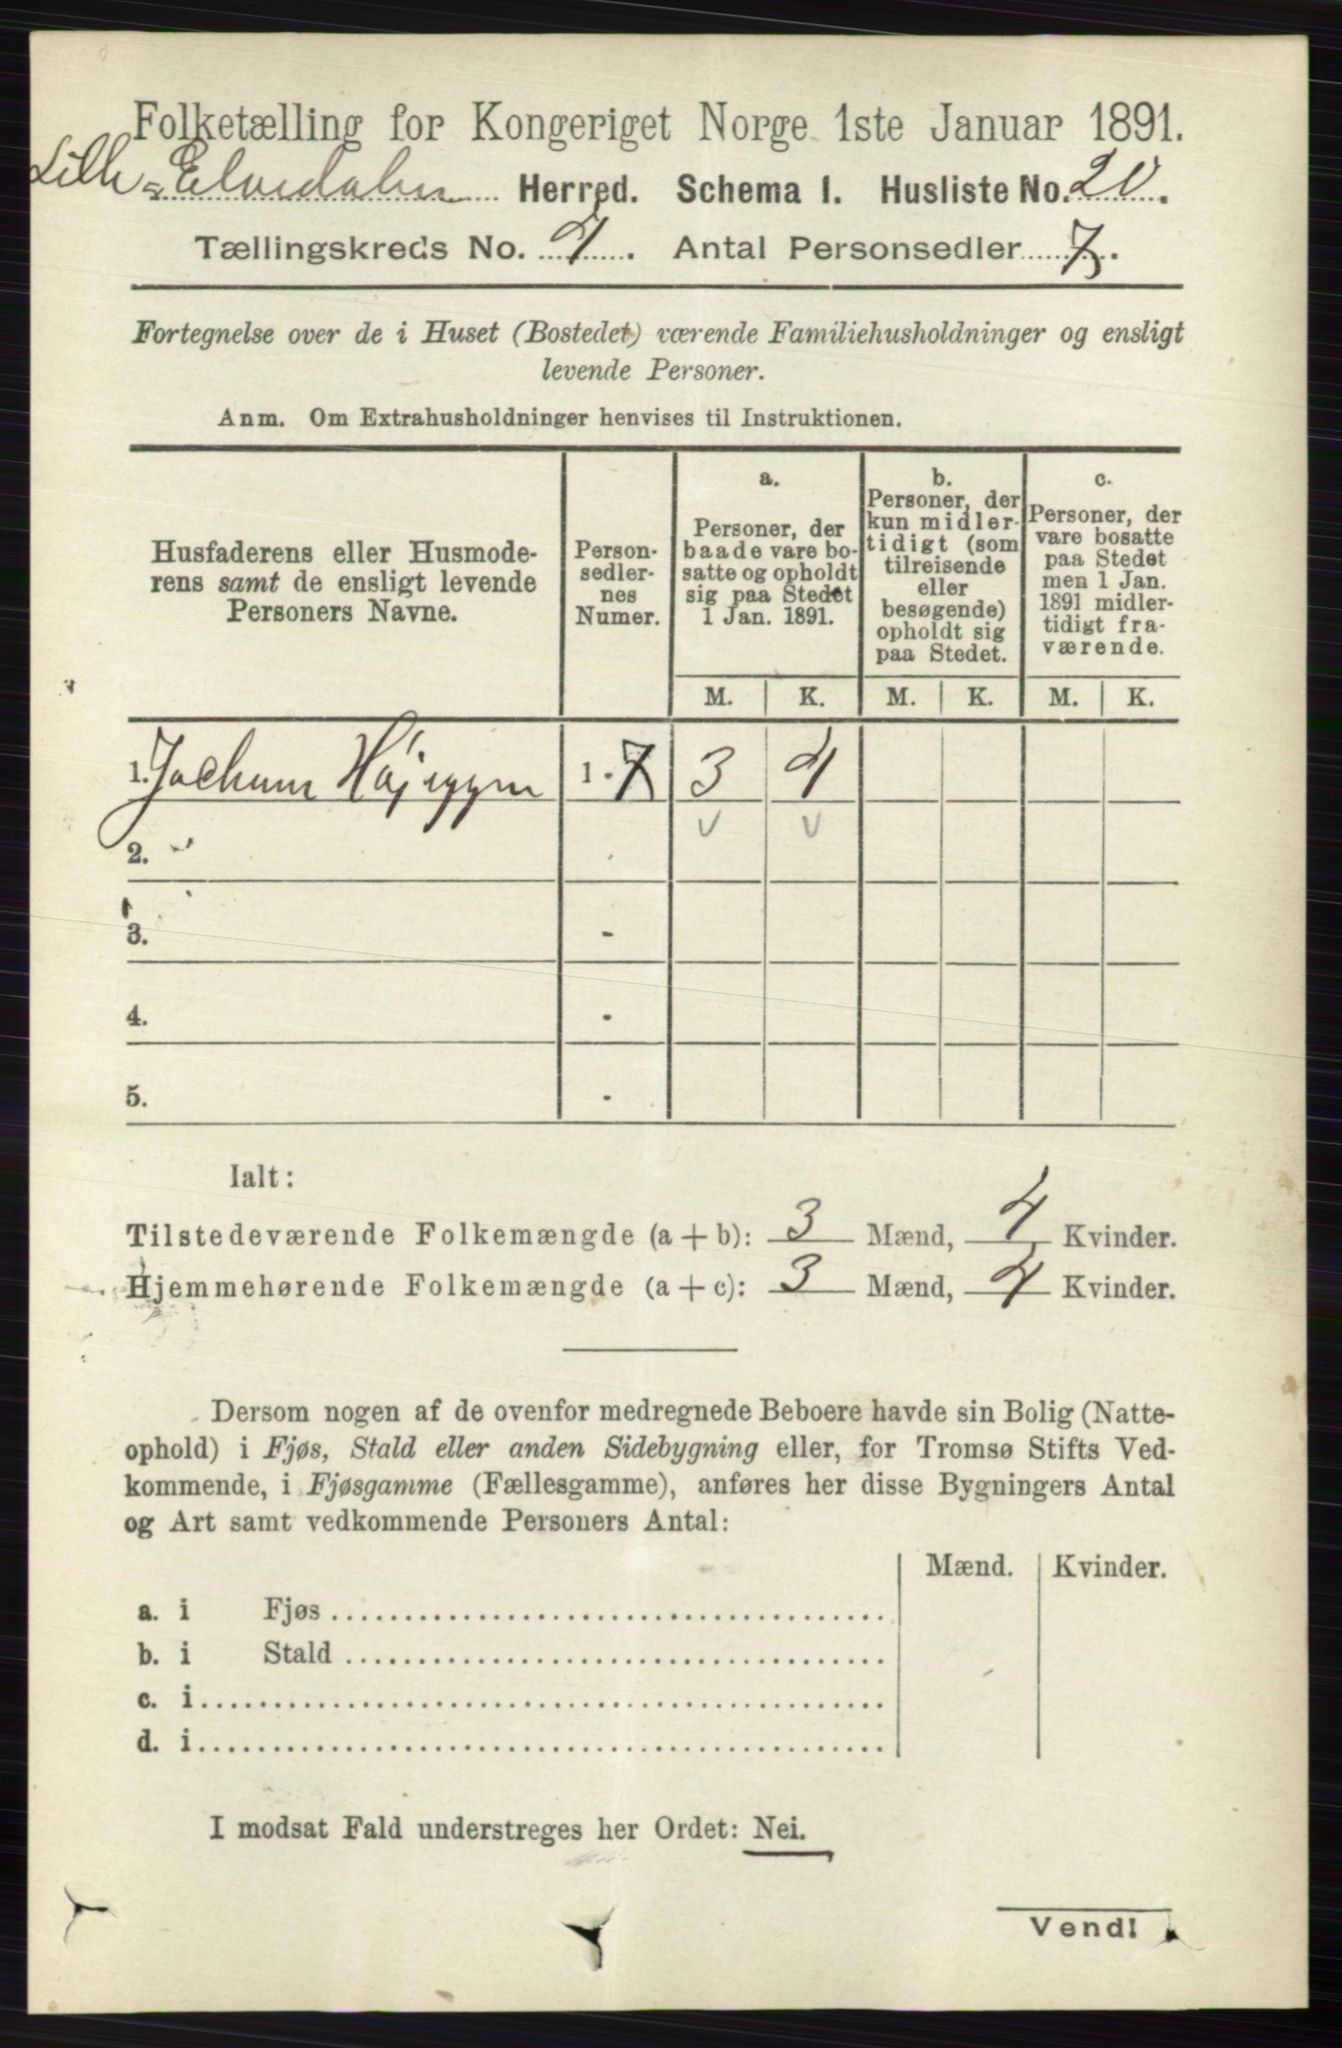 Folketælling for Kongeriget Norge 1ste Januar 1891.
Lille-Elvedalen Herred. Schema 1. Husliste No. 20.
Tællingskreds No. 4. Antal Personsedler 7.
Fortegnelse over de i Huset (Bostedet) værende Familiehusholdninger og ensligt
levende Personer.
Anm. Om Extrahusholdninger henvises til Instruktionen.
Husfaderens eller Husmode-
rens samt de ensligt levende
Personers Navne.
Person-
sedler-
nes
Numer.
a.
Personer, der
baade vare bo-
satte og opholdt
sig paa Stedet
1 Jan. 1891.
b.
Personer, der
kun midler-
tidigt (som
tilreisende
eller
besøgende)
opholdt sig
paa Stedet.
c.
Personer, der
vare bosatte
paa Stedet
men 1 Jan.
1891 midler-
tidigt fra-
værende.
M. K. M. K. M. K.
1. Jochum 1 - 7 3 4
2.
3. -
4. -
5. -
Ialt:
Tilstedeværende Folkemængde (a + b): 3 Mænd, 4 Kvinder.
Hjemmehørende Folkemængde (a + c): 3 Mænd, 4 Kvinder.
Dersom nogen af de ovenfor medregnede Beboere havde sin Bolig (Natte-
ophold) i Fjøs, Stald eller anden Sidebygning eller, for Tromsø Stifts Ved-
kommende, i Fjøsgamme (Fællesgamme), anføres her disse Bygningers Antal
og Art samt vedkommende Personers Antal:
Mænd. Kvinder.
a. i Fjøs
b. i Stald
c. i
d. i
I modsat Fald understreges her Ordet: Nei.
Vend!